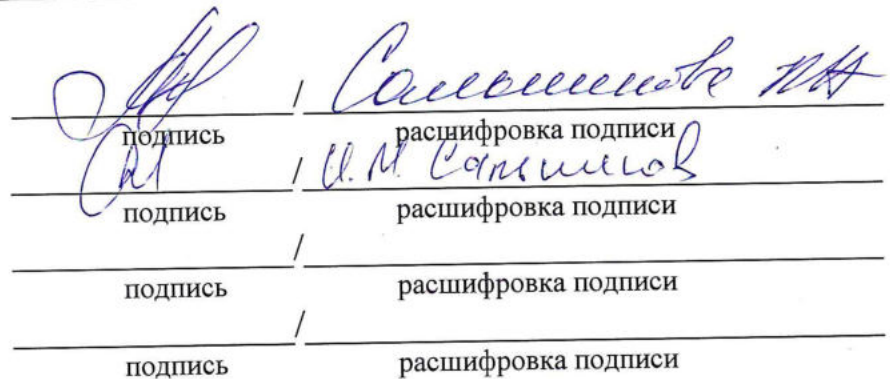 /
подпись расшифровка подписи
/ И.М.
подпись расшифровка подписи
/
подпись расшифровка подписи
/
подпись расшифровка подписи